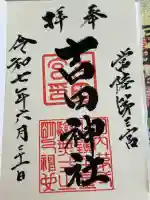 奉拝
常陸第三宮
吉田神社
令和七年六月二十一日